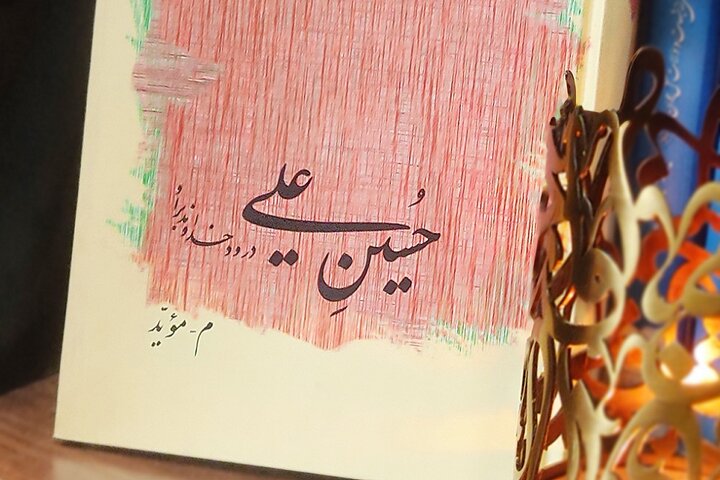 حُسینِ علی
درود خداوند بر اُ
م- مؤیّد